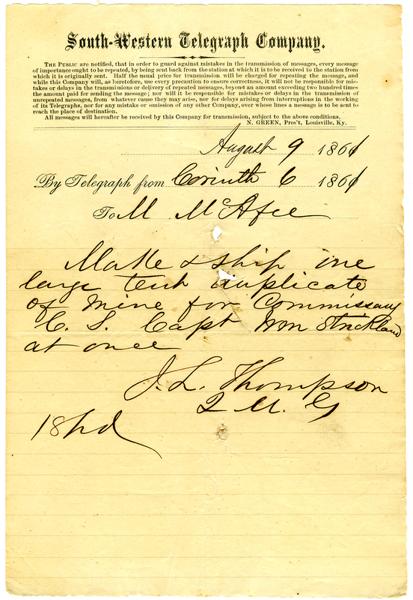 South-Western Telegraph Company.
The Public are notified, that in order to guard against mistakes in the transmission of messages, every message
of importance ought to be repeated, by being sent back from the station at which it is to be received to the station from
which it is originally sent. Half the usual price for transmission will be charged for repeating the message, and
while this Company will, as heretofore, use every precaution to ensure correctness, it will not be responsible for mis-
takes or delays in the transmissions or delivery of repeated messages, beyond an amount exceeding two hundred times
the amount paid for sending the message; nor will it be responsible for mistakes or delays in the transmission of
unrepeated messages, from whatever cause they may arise, nor for delays arising from interruptions in the working
of its Telegraphs, nor for any mistake or omission of any other Company, over whose lines a message is to be sent to
reach the place of destination.
All messages will hereafter be received by this Company for transmission, subject to the above conditions.
N. GREEN, Pres't, Louisville, Ky.
August 9 1861
By Telegraph from Corinth 6 1861
To M McAfee
Make & ship one
large tent duplicate
of mine for Commissary
C. S. Capt Wm Strickland
at once
J. L. Thompson
Q M. G
18 pd